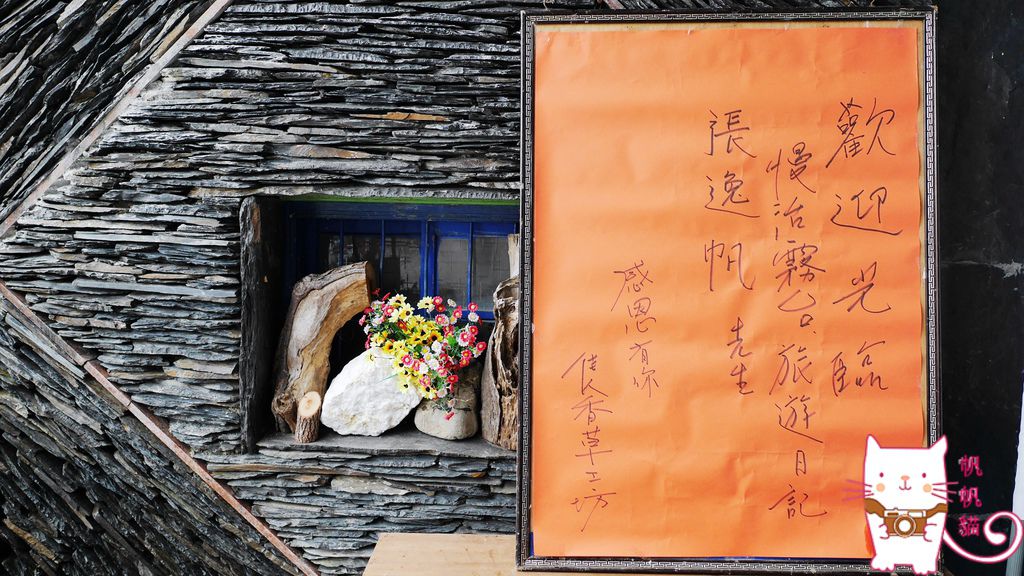 歡迎光臨
慢治霧台旅遊日記
張逸帆 先生
感恩有你
佳人香草工坊
帆帆貓